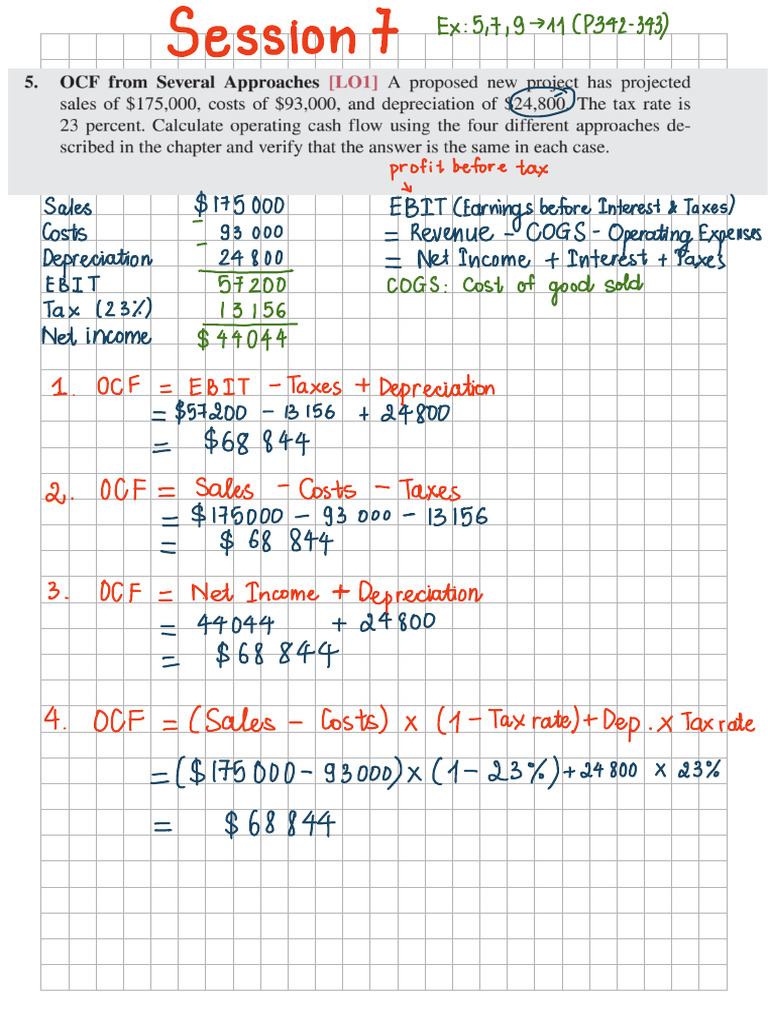 Session 7
Ex: 5,7,9→11 (P342-343)
5. OCF from Several Approaches [LO1] A proposed new project has projected
sales of $175,000, costs of $93,000, and depreciation of $24,800. The tax rate is
23 percent. Calculate operating cash flow using the four different approaches de-
scribed in the chapter and verify that the answer is the same in each case.
profit before tax
Sales $175 000
EBIT (Earnings before Interest & Taxes)
Costs - 93 000
= Revenue - COGS - Operating Expenses
Depreciation - 24 800
= Net Income + Interest + Taxes
EBIT 57200
COGS: Cost of good sold
Tax (23%) 13156
Net income $44044
1. OCF = EBIT - Taxes + Depreciation
= $57200 - 13156 + 24800
= $68 844
2. OCF = Sales - Costs - Taxes
= $175000 - 93 000 - 13156
= $ 68 844
3. OCF = Net Income + Depreciation
= 44044 + 24800
= $68 844
4. OCF = (Sales - Costs) x (1 - Tax rate) + Dep. x Tax rate
= ($175 000 - 93000) x (1 - 23%) + 24800 x 23%
= $68844